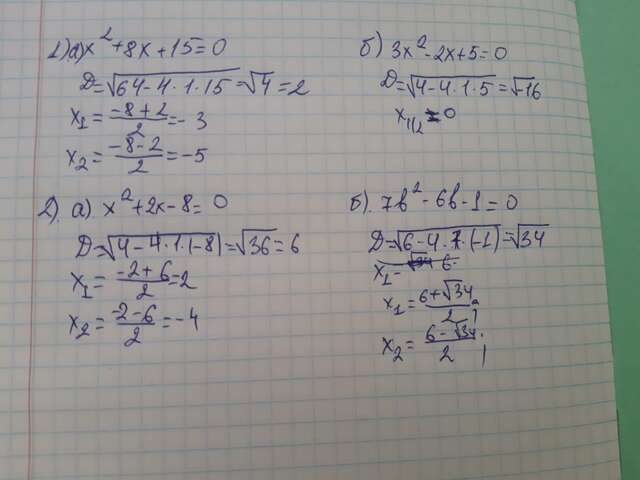 1) а) x² + 8x + 15 = 0
D = √64 - 4 · 1 · 15 = √4 = 2
x₁ = (-8 + 2)/2 = -3
x₂ = (-8 - 2)/2 = -5
б) 3x² - 2x + 5 = 0
D = √4 - 4 · 1 · 5 = √-16
x₁/₂ = 0
2). а) x² + 2x - 8 = 0
D = √4 - 4 · 1 · (-8) = √36 = 6
x₁ = (-2 + 6)/2 = 2
x₂ = (-2 - 6)/2 = -4
б). 7b² - 6b - 1 = 0
D = √6 - 4 · 7 · (-1) = √34
x₁ =
x₁ = (6 + √34)/2
x₂ = (6 - √34)/2